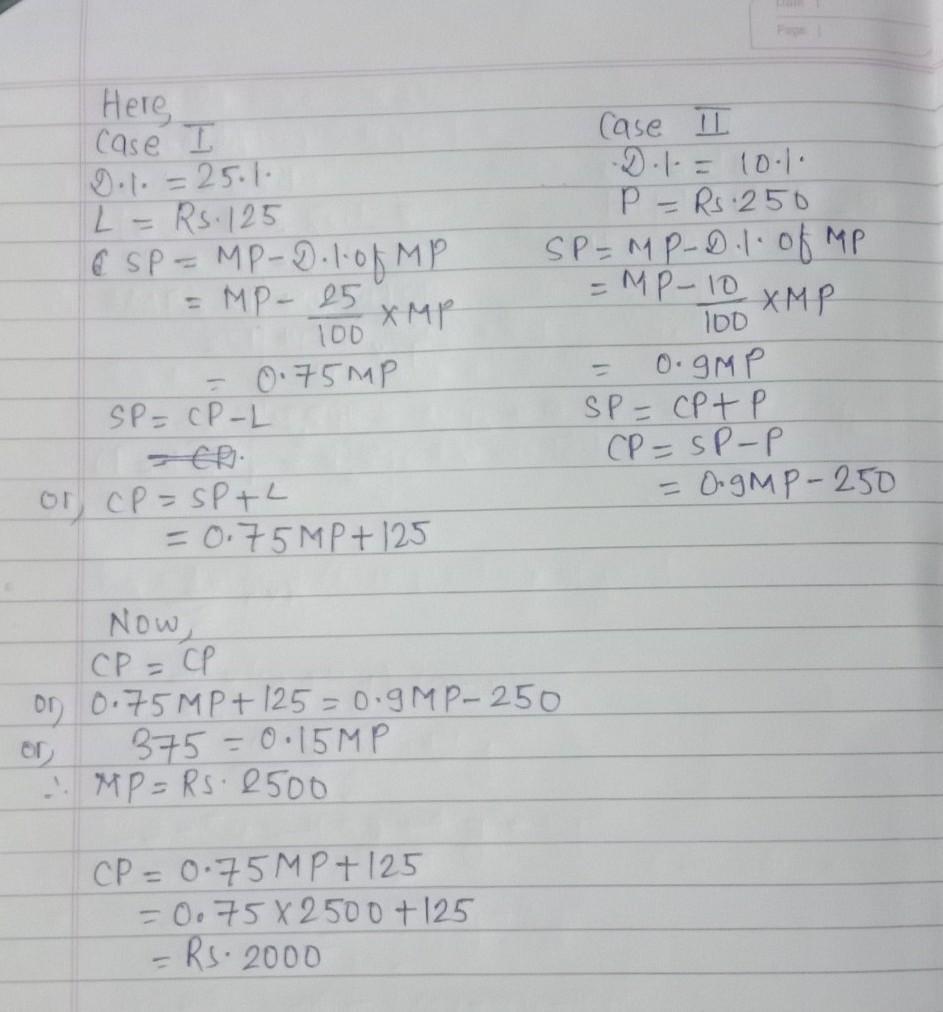 Page
Here,
Case I
D.1. = 25.1.
L = Rs.125
SP = MP-D.1.of MP
= MP- 25/100 ×MP
= 0.75MP
SP= CP-L
or, CP = SP+L
= 0.75MP+125
Case II
D.1. = 10.1.
P = Rs.250
SP= MP-D.1. of MP
= MP-10/100 ×MP
= 0.9MP
SP = CP+P
CP= SP-P
= 0.9MP-250
Now,
CP = CP
or, 0.75MP+125=0.9MP-250
or, 375 = 0.15MP
∴ MP= Rs. 2500
CP= 0.75MP+125
=0.75×2500+125
= Rs.2000